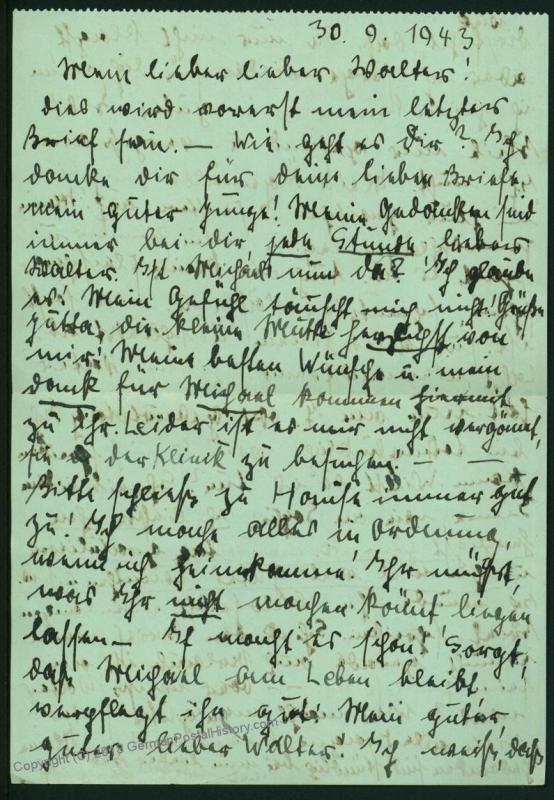 30. 9. 1943
Mein lieber lieber Walter!
dies wird vorerst mein letzter
Brief sein. — Wie geht es Dir? Ich
danke dir für deine lieben Briefe,
mein guter Junge! Meine Gedanken sind
immer bei dir jede Stunde lieber
Walter. Ist Michael nun da? Ich glaube
es! Mein Gefühl täuscht mich nicht! Grüße
Jutta, die kleine Mutti herzlichst von
mir! Meine besten Wünsche u. mein
Dank für Michael kommen hiermit
zu ihr. Leider ist es mir nicht vergönnt,
sie in der Klinik zu besuchen! — —
Bitte schließ zu Hause immer gut
zu! Ich mache alles in Ordnung,
wenn ich heimkomme! Ihr müßt,
was Ihr nicht machen könnt liegen
lassen — Ich mache es schon! Sorgt,
daß Michael am Leben bleibt,
verpflegt ihn gut! Mein guter
guter lieber Walter! Ich weiß, daß
Copyright (C) GermanPostalHistory.com